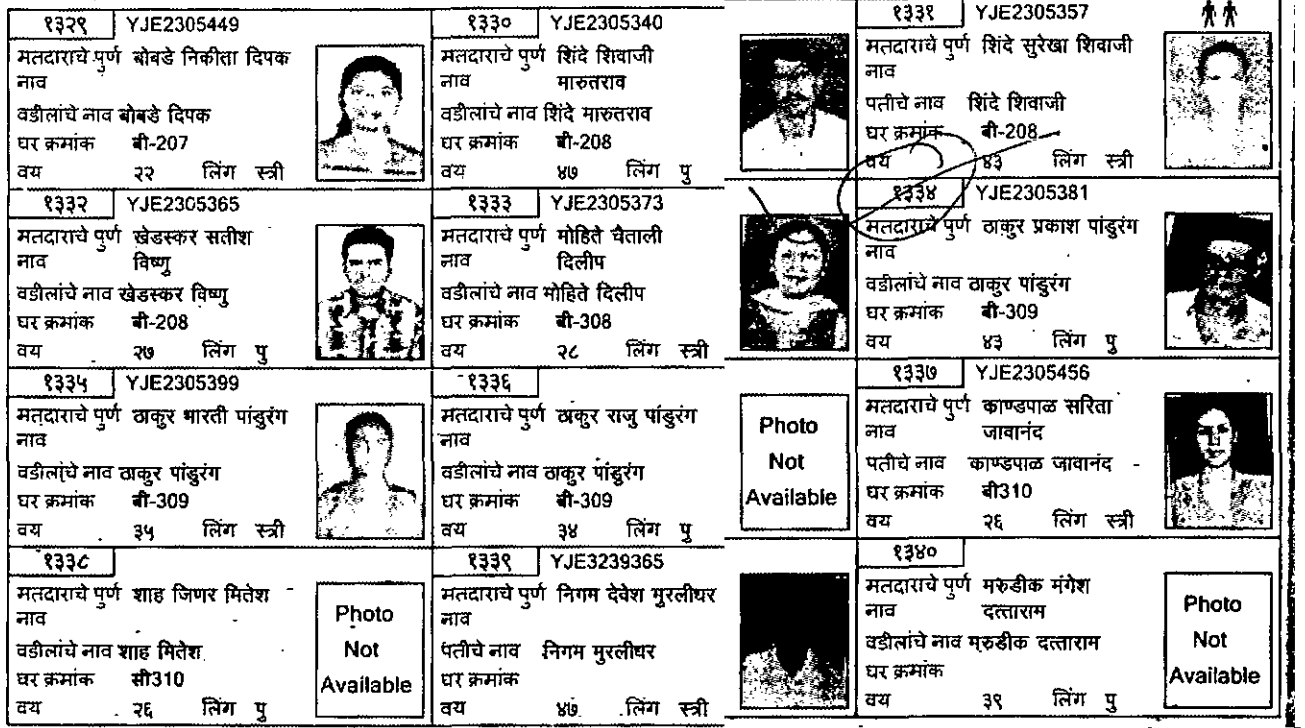 १३२९ YJE2305449
मतदाराचे पुर्ण बोबडे निकीता दिपक
नाव
वडीलांचे नाव बोबडे दिपक
घर क्रमांक बी-207
वय २२ लिंग स्त्री
१३३० YJE2305340
मतदाराचे पुर्ण शिंदे शिवाजी
नाव मारुतराव
वडीलांचे नाव शिंदे मारुतराव
घर क्रमांक बी-208
वय ४७ लिंग पु
१३३१ YJE2305357
मतदाराचे पुर्ण शिंदे सुरेखा शिवाजी
नाव
पतीचे नाव शिंदे शिवाजी
घर क्रमांक बी-208
वय ४३ लिंग स्त्री
१३३२ YJE2305365
मतदाराचे पुर्ण खेडस्कर सतीश
नाव विष्णु
वडीलांचे नाव खेडस्कर विष्णु
घर क्रमांक बी-208
वय २७ लिंग पु
१३३३ YJE2305373
मतदाराचे पुर्ण मोहिते चैताली
नाव दिलीप
वडीलांचे नाव मोहिते दिलीप
घर क्रमांक बी-308
वय २८ लिंग स्त्री
१३३४ YJE2305381
मतदाराचे पुर्ण ठाकुर प्रकाश पांडुरंग
नाव
वडीलांचे नाव ठाकुर पांडुरंग
घर क्रमांक बी-309
वय ४३ लिंग पु
१३३५ YJE2305399
मतदाराचे पुर्ण ठाकुर भारती पांडुरंग
नाव
वडीलांचे नाव ठाकुर पांडुरंग
घर क्रमांक बी-309
वय ३५ लिंग स्त्री
१३३६
मतदाराचे पुर्ण ठाकुर राजु पांडुरंग
नाव
वडीलांचे नाव ठाकुर पांडुरंग
घर क्रमांक बी-309
वय ३४ लिंग पु
Photo
Not
Available
१३३७ YJE2305456
मतदाराचे पुर्ण काण्डपाळ सरिता
नाव जावानंद
पतीचे नाव काण्डपाळ जावानंद
घर क्रमांक बी310
वय २६ लिंग स्त्री
१३३८
मतदाराचे पुर्ण शाह जिणर मितेश
नाव
वडीलांचे नाव शाह मितेश
घर क्रमांक सी310
वय २६ लिंग पु
Photo
Not
Available
१३३९ YJE3239365
मतदाराचे पुर्ण निगम देवेश मुरलीधर
नाव
पतीचे नाव निगम मुरलीधर
घर क्रमांक
वय ४७ लिंग स्त्री
१३४०
मतदाराचे पुर्ण मरुडीक मंगेश
नाव दत्ताराम
वडीलांचे नाव मरुडीक दत्ताराम
घर क्रमांक
वय ३९ लिंग पु
Photo
Not
Available